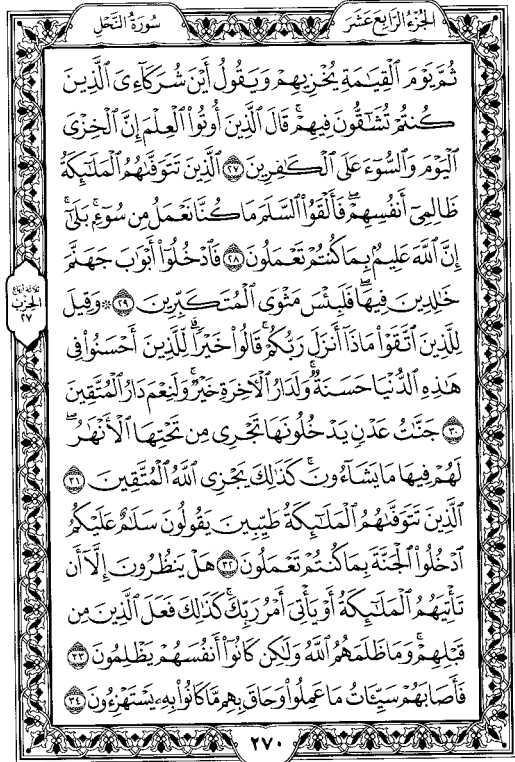 الجزء الرابع عشر
سورة النحل
ثُمَّ يَوْمَ ٱلْقِيَٰمَةِ يُخْزِيهِمْ وَيَقُولُ أَيْنَ شُرَكَآءِىَ ٱلَّذِينَ
كُنتُمْ تُشَٰٓقُّونَ فِيهِمْ ۚ قَالَ ٱلَّذِينَ أُوتُوا۟ ٱلْعِلْمَ إِنَّ ٱلْخِزْىَ
ٱلْيَوْمَ وَٱلسُّوٓءَ عَلَى ٱلْكَٰفِرِينَ ٢٧ ٱلَّذِينَ تَتَوَفَّىٰهُمُ ٱلْمَلَٰٓئِكَةُ
ظَالِمِىٓ أَنفُسِهِمْ ۖ فَأَلْقَوُا۟ ٱلسَّلَمَ مَا كُنَّا نَعْمَلُ مِن سُوٓءٍۭ ۚ بَلَىٰٓ
إِنَّ ٱللَّهَ عَلِيمٌۢ بِمَا كُنتُمْ تَعْمَلُونَ ٢٨ فَٱدْخُلُوٓا۟ أَبْوَٰبَ جَهَنَّمَ
خَٰلِدِينَ فِيهَا ۖ فَلَبِئْسَ مَثْوَى ٱلْمُتَكَبِّرِينَ ٢٩ ۞ وَقِيلَ
لِلَّذِينَ ٱتَّقَوْا۟ مَاذَآ أَنزَلَ رَبُّكُمْ ۚ قَالُوا۟ خَيْرًا ۗ لِّلَّذِينَ أَحْسَنُوا۟ فِى
هَٰذِهِ ٱلدُّنْيَا حَسَنَةٌ ۚ وَلَدَارُ ٱلْءَاخِرَةِ خَيْرٌ ۚ وَلَنِعْمَ دَارُ ٱلْمُتَّقِينَ
٣٠ جَنَّٰتُ عَدْنٍ يَدْخُلُونَهَا تَجْرِى مِن تَحْتِهَا ٱلْأَنْهَٰرُ ۖ
لَهُمْ فِيهَا مَا يَشَآءُونَ ۚ كَذَٰلِكَ يَجْزِى ٱللَّهُ ٱلْمُتَّقِينَ ٣١
ٱلَّذِينَ تَتَوَفَّىٰهُمُ ٱلْمَلَٰٓئِكَةُ طَيِّبِينَ ۙ يَقُولُونَ سَلَٰمٌ عَلَيْكُمُ
ٱدْخُلُوا۟ ٱلْجَنَّةَ بِمَا كُنتُمْ تَعْمَلُونَ ٣٢ هَلْ يَنظُرُونَ إِلَّآ أَن
تَأْتِيَهُمُ ٱلْمَلَٰٓئِكَةُ أَوْ يَأْتِىَ أَمْرُ رَبِّكَ ۚ كَذَٰلِكَ فَعَلَ ٱلَّذِينَ مِن
قَبْلِهِمْ ۚ وَمَا ظَلَمَهُمُ ٱللَّهُ وَلَٰكِن كَانُوٓا۟ أَنفُسَهُمْ يَظْلِمُونَ ٣٣
فَأَصَابَهُمْ سَيِّـَٔاتُ مَا عَمِلُوا۟ وَحَاقَ بِهِم مَّا كَانُوا۟ بِهِۦ يَسْتَهْزِءُونَ ٣٤
ثلاثة أرباع
الحزب
٢٧
٢٧٠